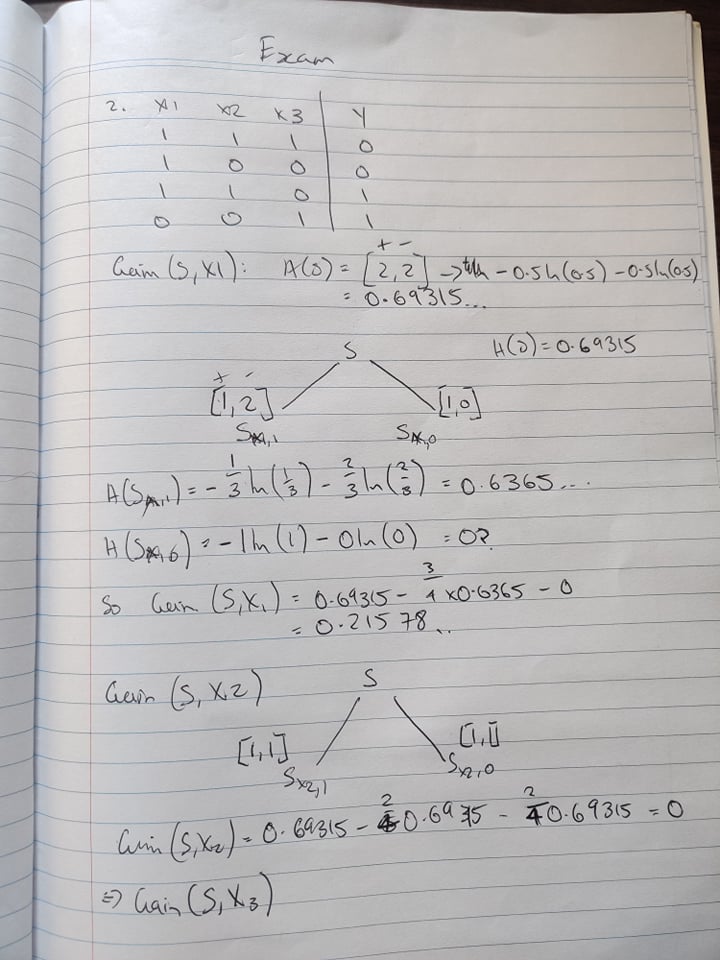 Exam
2. X1 X2 X3 Y
1 1 1 0
1 0 0 0
1 1 0 1
0 0 1 1
Gain (S, X1): H(S) = [2, 2] → - 0.5ln(0.5) - 0.5ln(0.5)
+ -
= 0.69315...
S H(S) = 0.69315
+ -
[1, 2] [1,0]
SX1,1 SX1,0
H(SX1,1) = - 1/3 ln(1/3) - 2/3 ln(2/3) = 0.6365...
H(SX1,0) = -1ln(1) - 0ln(0) = 0?
So Gain (S, X1) = 0.69315 - 3/4 x0.6365 - 0
= 0.21578..
Gain (S, X2) S
[1,1] [1,1]
SX2,1 SX2,0
Gain (S, X2) = 0.69315 - 2/4 0.69315 - 2/4 0.69315 = 0
=> Gain (S, X3)